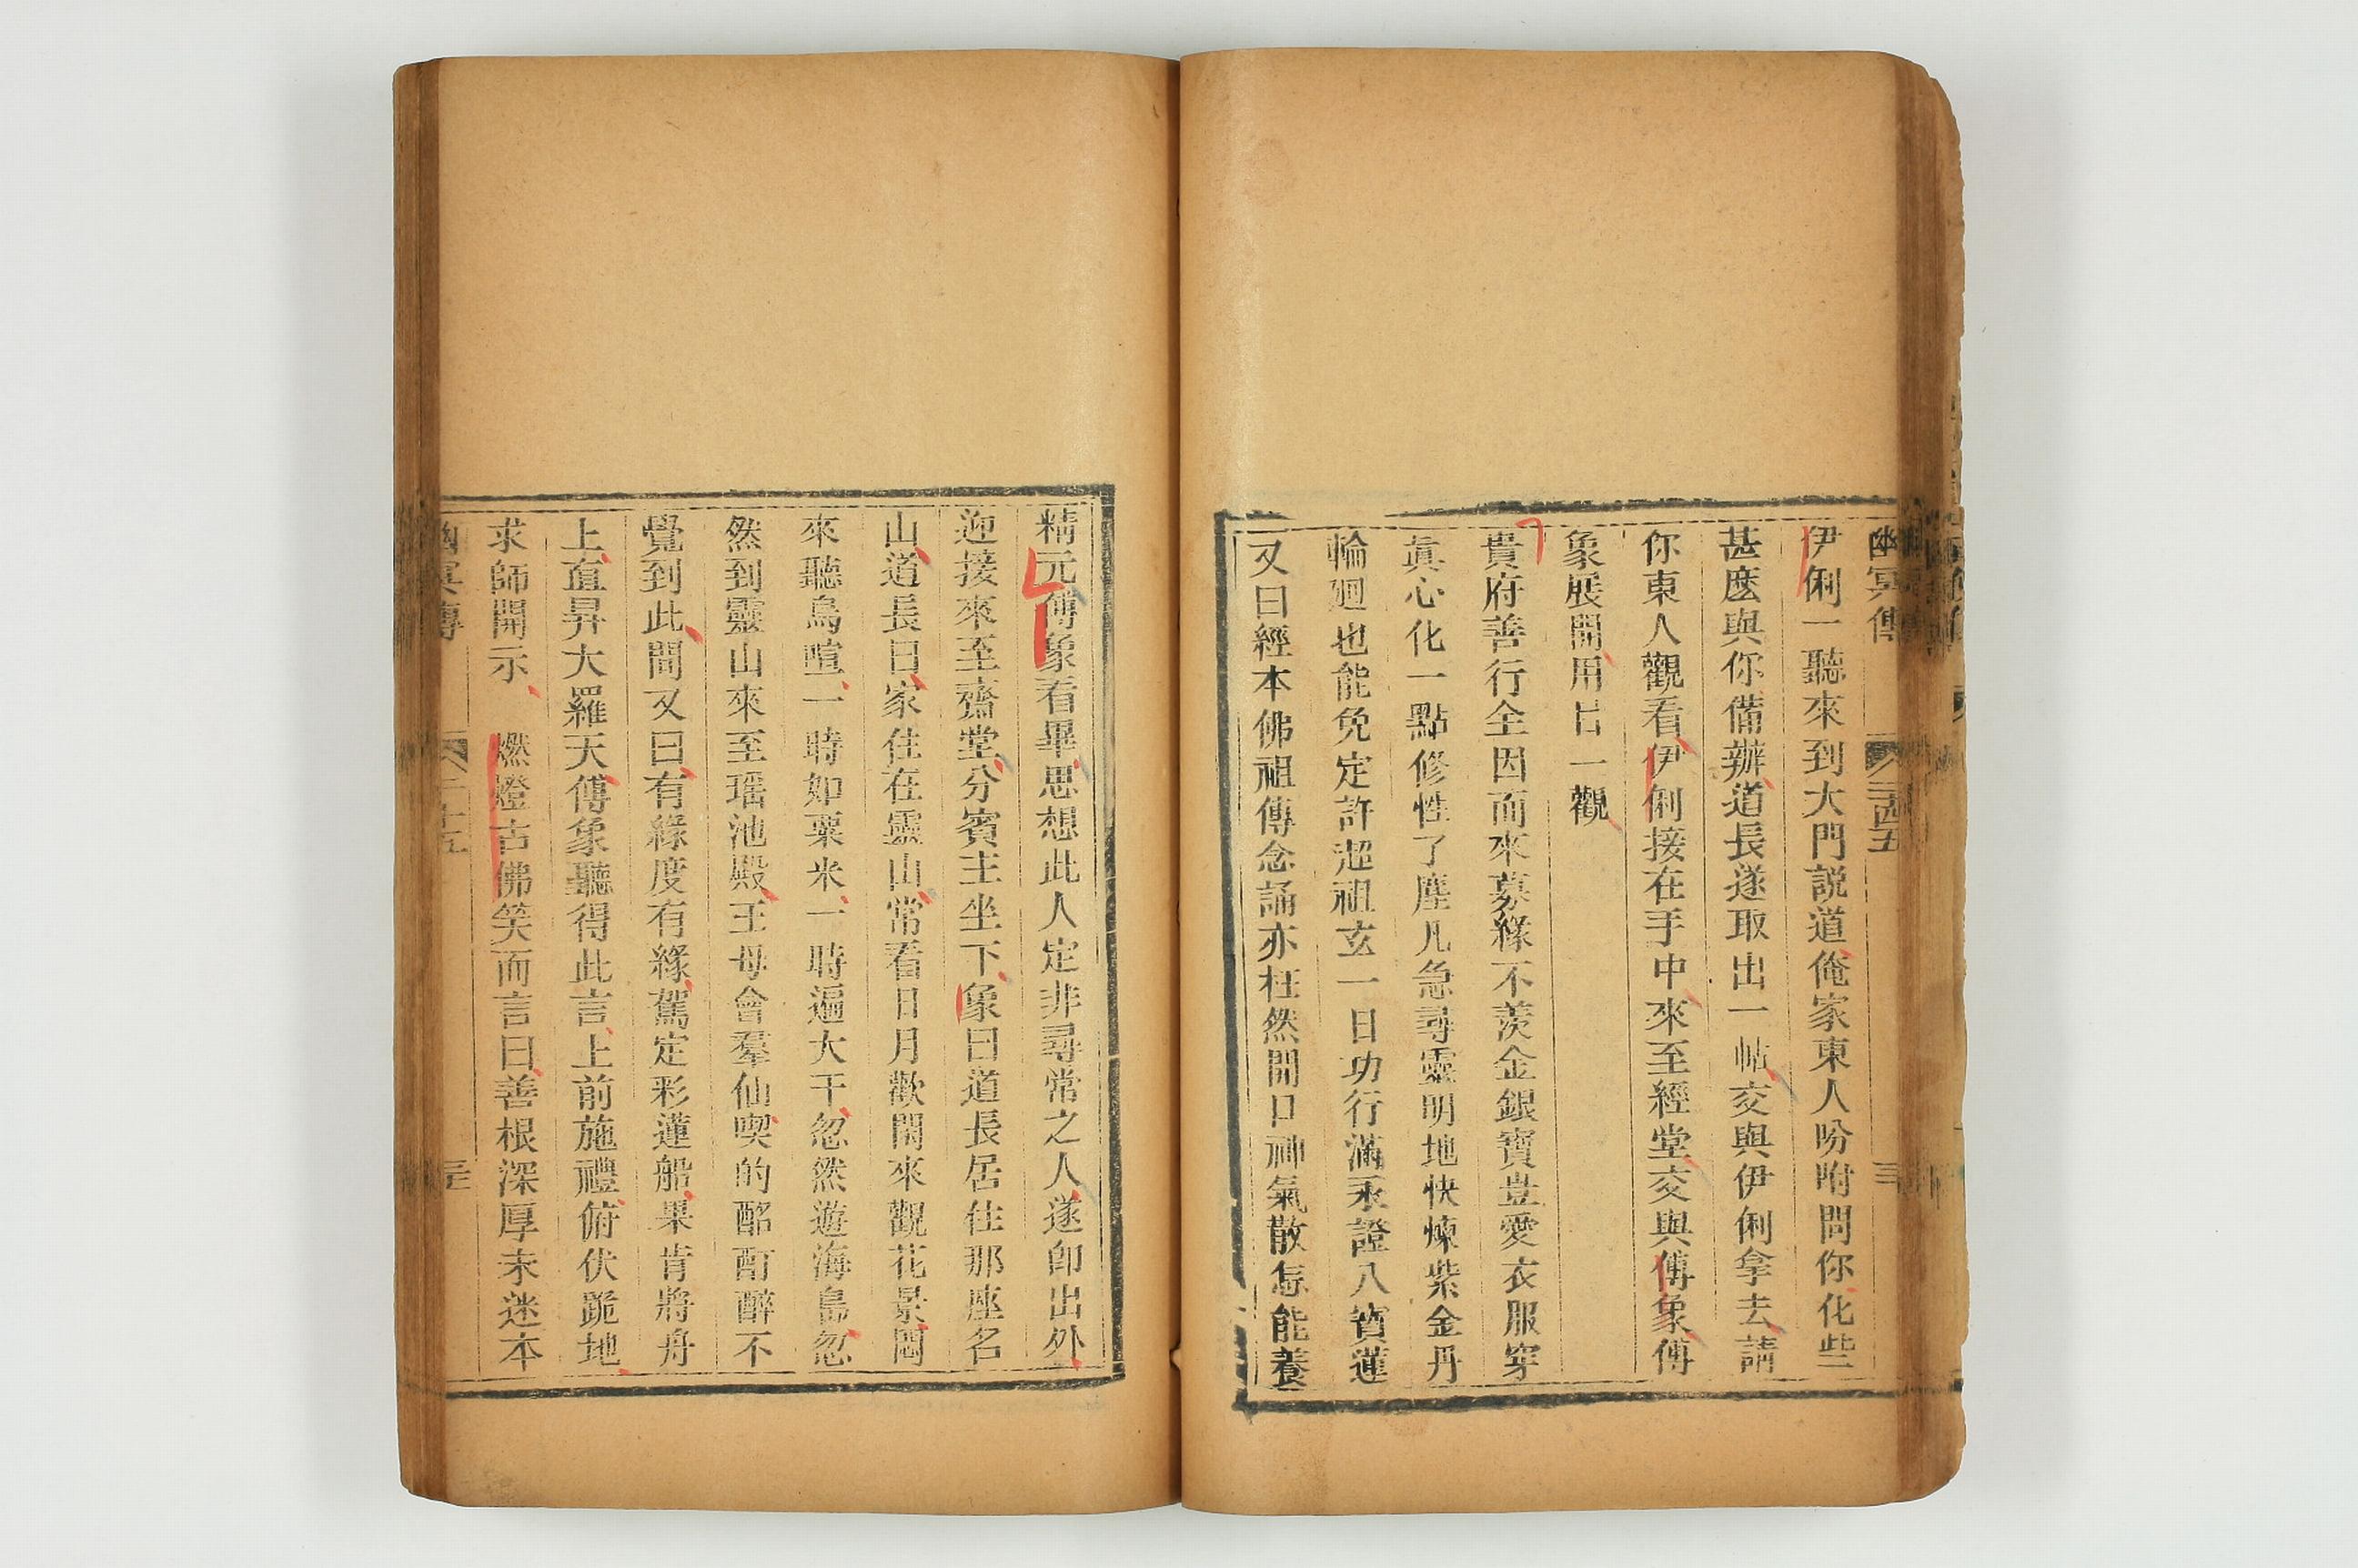 幽冥傳
伊俐一聽來到大門説道俺家東人吩咐問你化些
甚麽與你備辦道長遂取出一帖交與伊俐拿去請
你東人觀看伊俐接在手中來至經堂交與傅象傅
象展開用目一觀
貴府善行全因而來募緣不羨金銀寶豈愛衣服穿
眞心化一點修性了塵凡急尋靈明地快煉紫金丹
輪廻也能免定許超祖玄一日功行滿永證八寶蓮
又曰經本佛祖傳念誦亦枉然開口神氣散怎能養
精元傅象看畢思想此人定非尋常之人遂卽出外
迎接來至齋堂分賓主坐下象曰道長居住那座名
山道長曰家住在靈山常看日月歡閑來觀花景悶
來聽鳥喧一時如粟米一時遍大千忽然遊海島忽
然到靈山來至瑶池殿王母會羣仙喫的酩酊醉不
覺到此間又曰有緣度有緣駕定彩蓮船果肯將舟
上直昇大羅天傅象聽得此言上前施禮俯伏跪地
求師開示　燃燈古佛笑而言曰善根深厚未迷本
幽冥傳